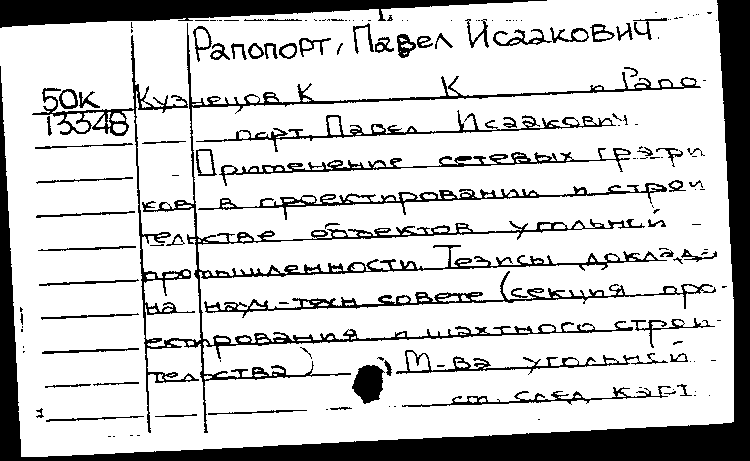 Рапопорт, Павел Исаакович
50к Кузнецов, К К и Рапо-
13348 порт, Павел Исаакович.
Применение сетевых графи
ков в проектировании и строи
тельстве объектов угольной
промышленности. Тезисы доклада
на науч.-техн совете (секция про-
ектирования и шахтного строи-
тельства) М-ва угольной
см. след. карт.